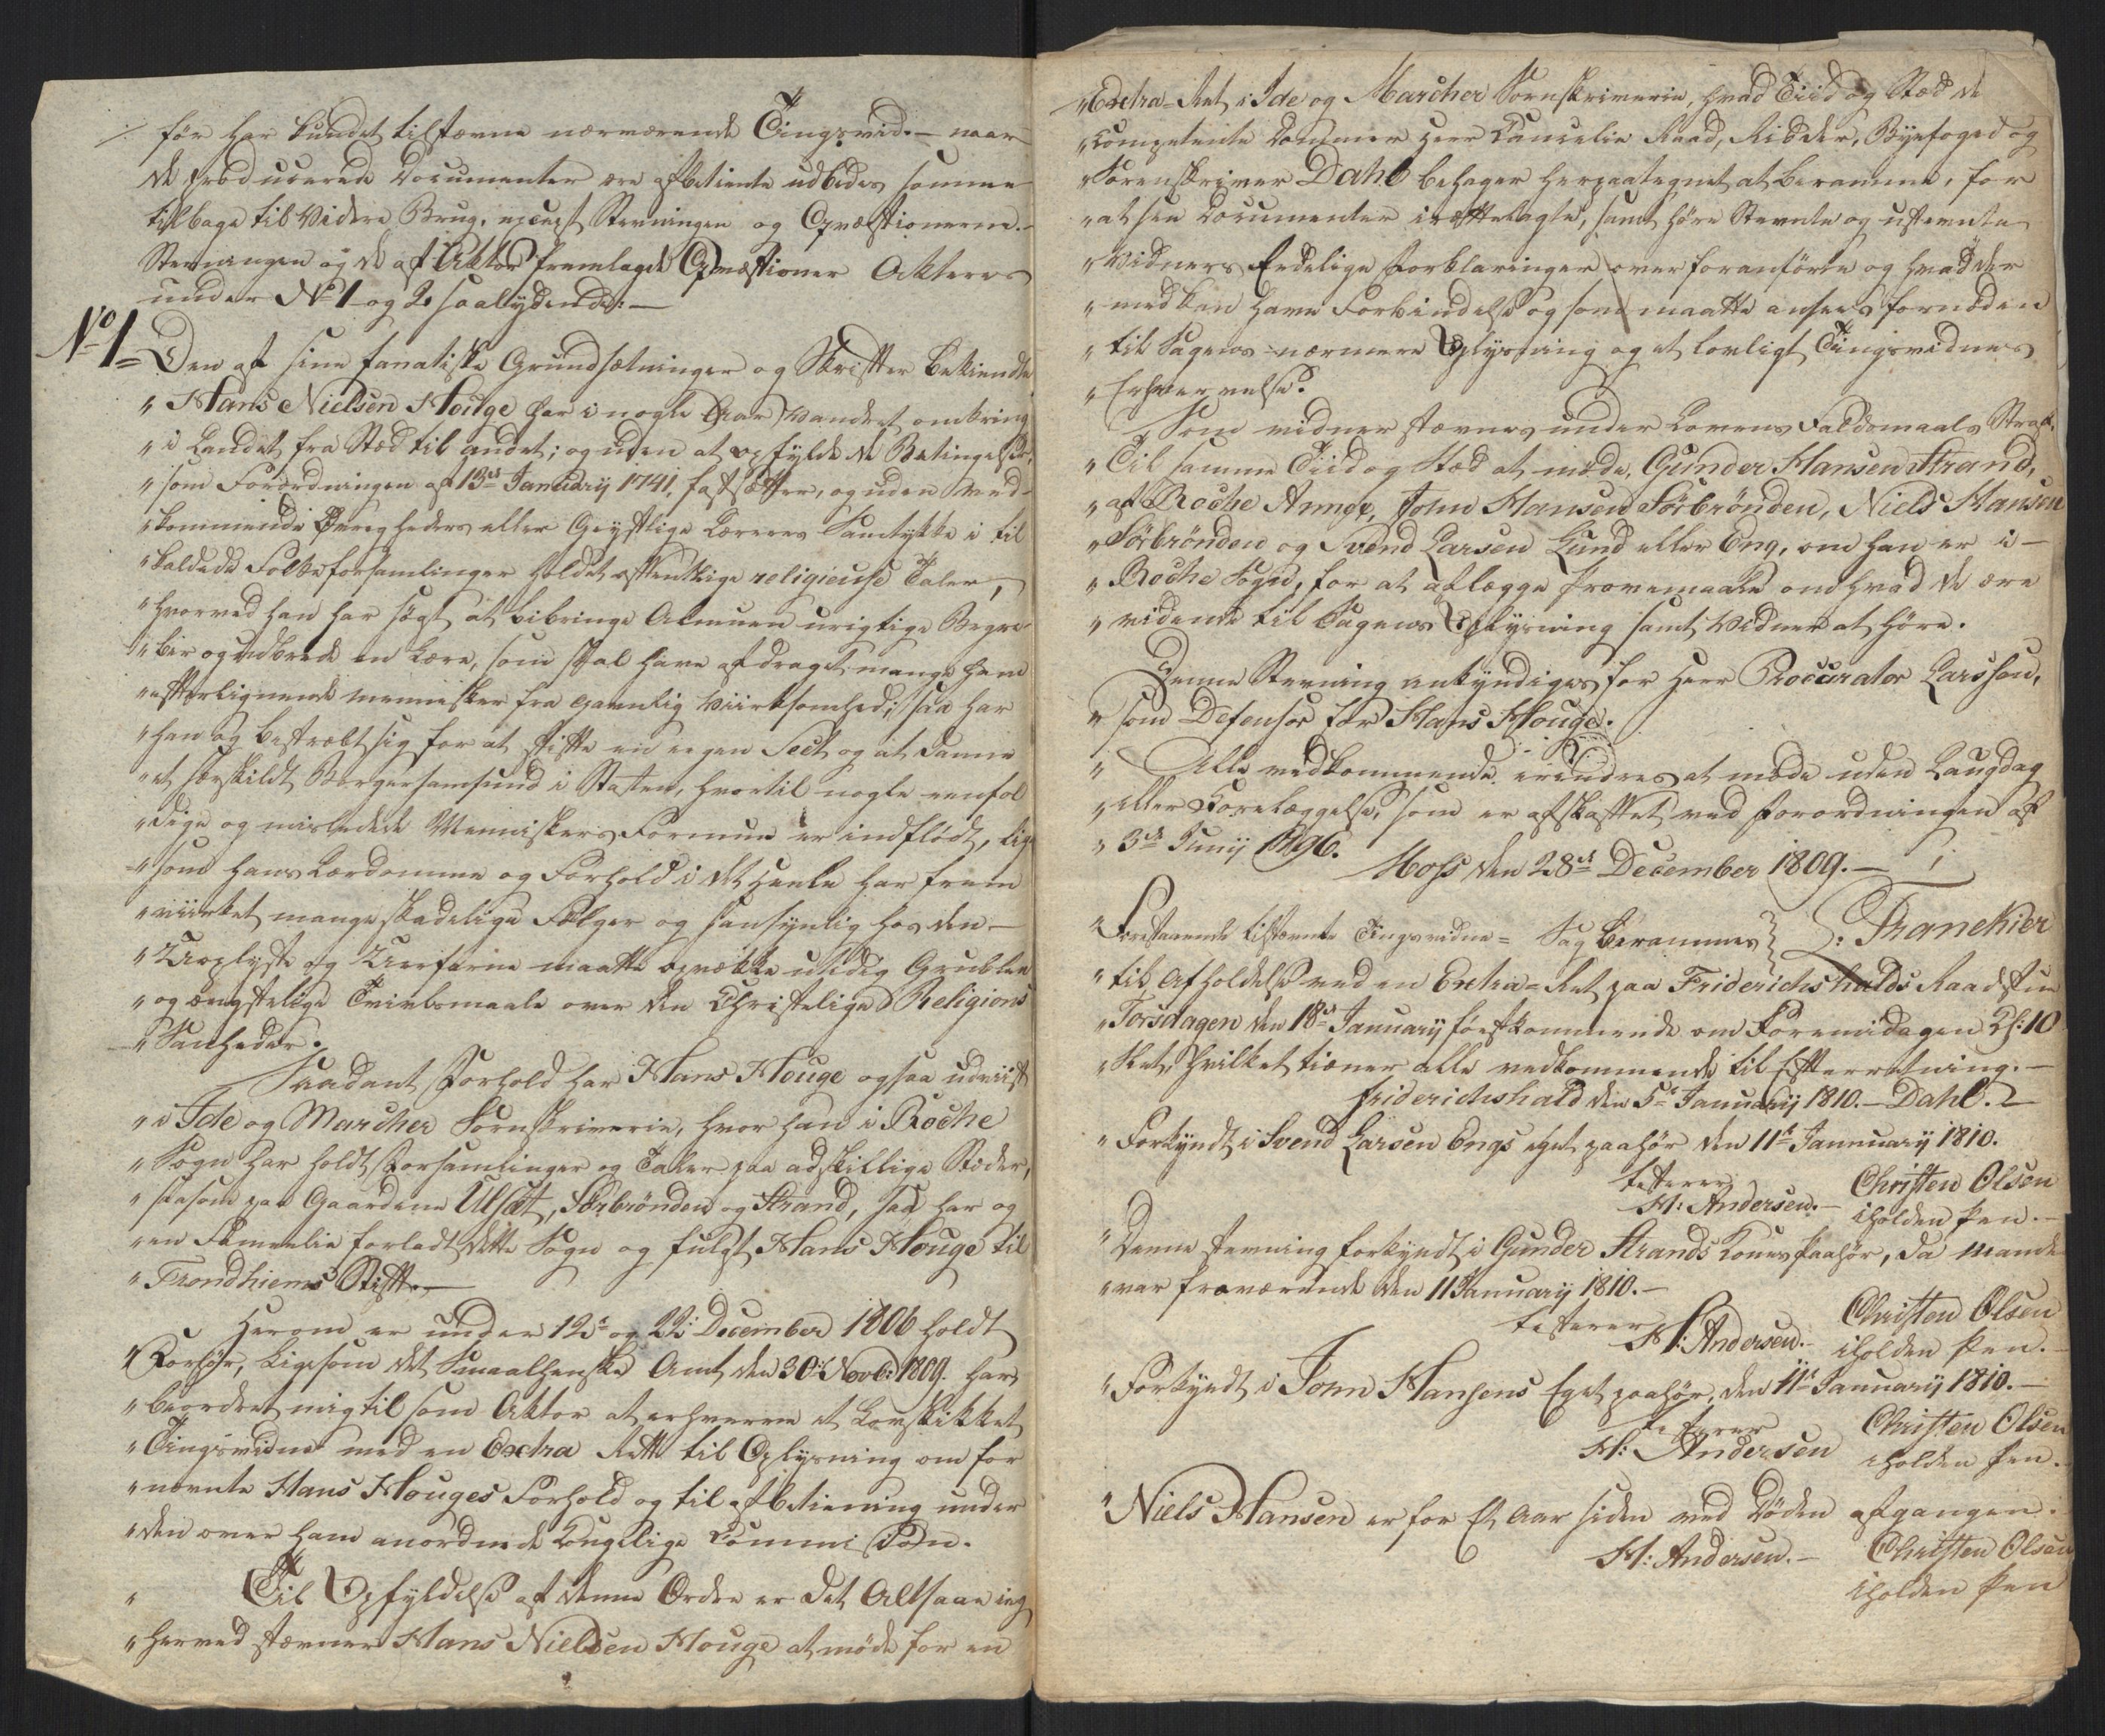 før har kundet tilstævne nærværende Tingsvid. – naar
de producerede Documenter ere afbetiente udbedes samme
tilbage til videre Brug, except Stevningen og Qvæstionerne.
Stevningen og de af Aktor fremlagde Qvæstioner Akteres
under No 1 og 2 saalydende: –
No 1 = Den af sine fanatiske Grundsætninger og Skrifter bekiendte
" Hans Nielsen Houge har i nogle Aar vandret omkring
" i Landet fra Stæd til andet; og uden at opfylde de Betingelser,
" som Forordningen af 13de January 1741, fastsætter, og uden ved-
" kommende Øvrigheders eller Geystlige Læreres Samtykke i til
" kaldede Folkeforsamlinger holdet offentlige religieuse Taler,
" hvorved han har søgt at bibringe Almuen urigtige Begre-
" ber og udbrede en Lære, som skal have afdraget mange ham
" efterlignende mennisker fra gavnlig Viirksomhed; saa har
" han og bestræbt sig for at stifte en egen Sect og at danne
" et særskildt Borgersamfund i Staten, hvortil nogle eenfol
" dige og misledede Menniskers Formue er indflödt, lige
" som hans Lærdomme og Forhold i det Heele har frem
" viirket mange skadelige Følger og sandsynlig hos den –
" Uoplyste og Uerfarne maatte opvække utidig Grublen
" og ængstelige Tvivlsmaale over den Christelige Religions
" Sanheder.
Saadant Forhold har Hans Houge ogsaa udviist
" i Ide og Marcher Sornskriverie, hvor han i Roche
" Sogn har holdt Forsamlinger og Taler paa adskillige Stæder,
" saasom paa Gaardene Ulsæt, Sörbrönden og Strand, saa har og
" en Familie forladt dette Sogn og fulgt Hans Houge til
" Trondhiems Stift. –
Herom er under 12te og 22de December 1806 holdt
" Forhör, ligesom det Smaalhenske Amt den 30te Novbr: 1809 har
" beordret mig til som Aktor at erhverve et Lovskikket
" Tingsvidne med en Extra Rett til Oplysning om for
" nævnte Hans Houges Forhold og til afbetiening under
" den over ham anordnede Kongelige Commission.
" Til Opfyldelse af denne Ordre er det Altsaa ieg
" herved stævner Hans Nielsen Houge at møde for en
" Extra-Ret i Ide og Marcher Sornskriverie, hvad Tiid og Stæd de
" competente Dommer Herr Cancelie Raad, Ridder, Byefoged og
" Sorenskriver Dahl behager herpaategnet at beramme, for
" at see Documenter irættelagte, samt høre Stevnte og ustevnte
" Vidners Eedelige Forklaringer over foranförte og hvad der
" med kan have Forbindelse og som maatte ansees fornöden
" til Sagens nærmere Oplysning og et lovligt Tingsvidnes
" Erhvervelse.
Som vidner stævnes under Lovens Faldsmaals Straf,
" Til samme Tiid og Stæd at møde, Gunder Hansen Strand,
" af Roche Annex, John Hansen Sörbrönden, Niels Hansen
" Sörbrönden og Svend Larsen Lund eller Eng, om han er i –
" Roche Sogn, for at aflægge Provemaale om hvad de ere
" vidende til Sagens Oplysning samt Vidner at höre.
Denne Stevning ankyndiges for Herr Procurator Larsson,
" som Defensor for Hans Houge.
" Alle vedkommende erindres at møde uden Laugdag
" eller Forelæggelse, som er afskaffet ved Forordningen af
" 3de Junij 1796.
Moss den 28de December 1809. –
L: Tranekier
" Forestaaende tilstævnte Tingsvidne = Sag berammes
" til Afholdelse ved en Extra-Ret paa Friderichshalds Raadstue
" Torsdagen den 18de January førstkommende om Formidagen Kl: 10
" Slet, hvilket tiener alle vedkommende til Efterretning. –
Friderichshald den 5te January 1810. – Dahl.
" Forkyndt i Svend Larsen Engs eget paahør den 11te January 1810.
testerer
H: Andersen. – Christen Olsen
iholden Pen. –
" Denne stevning forkyndt i Gunder Strands Kones Paahør, da Manden
" var fraværende den 11 January 1810. –
testerer
H: Andersen. – Christen Olsen
iholden Pen. –
" Forkyndt i John Hansens Eget paahör, den 11te January 1810. –
testerer
H: Andersen Christen Olsen
iholden Pen.
" Niels Hansen er for Et Aar siden ved Döden afgangen.
H: Andersen. – Christen Olsen
iholden Pen